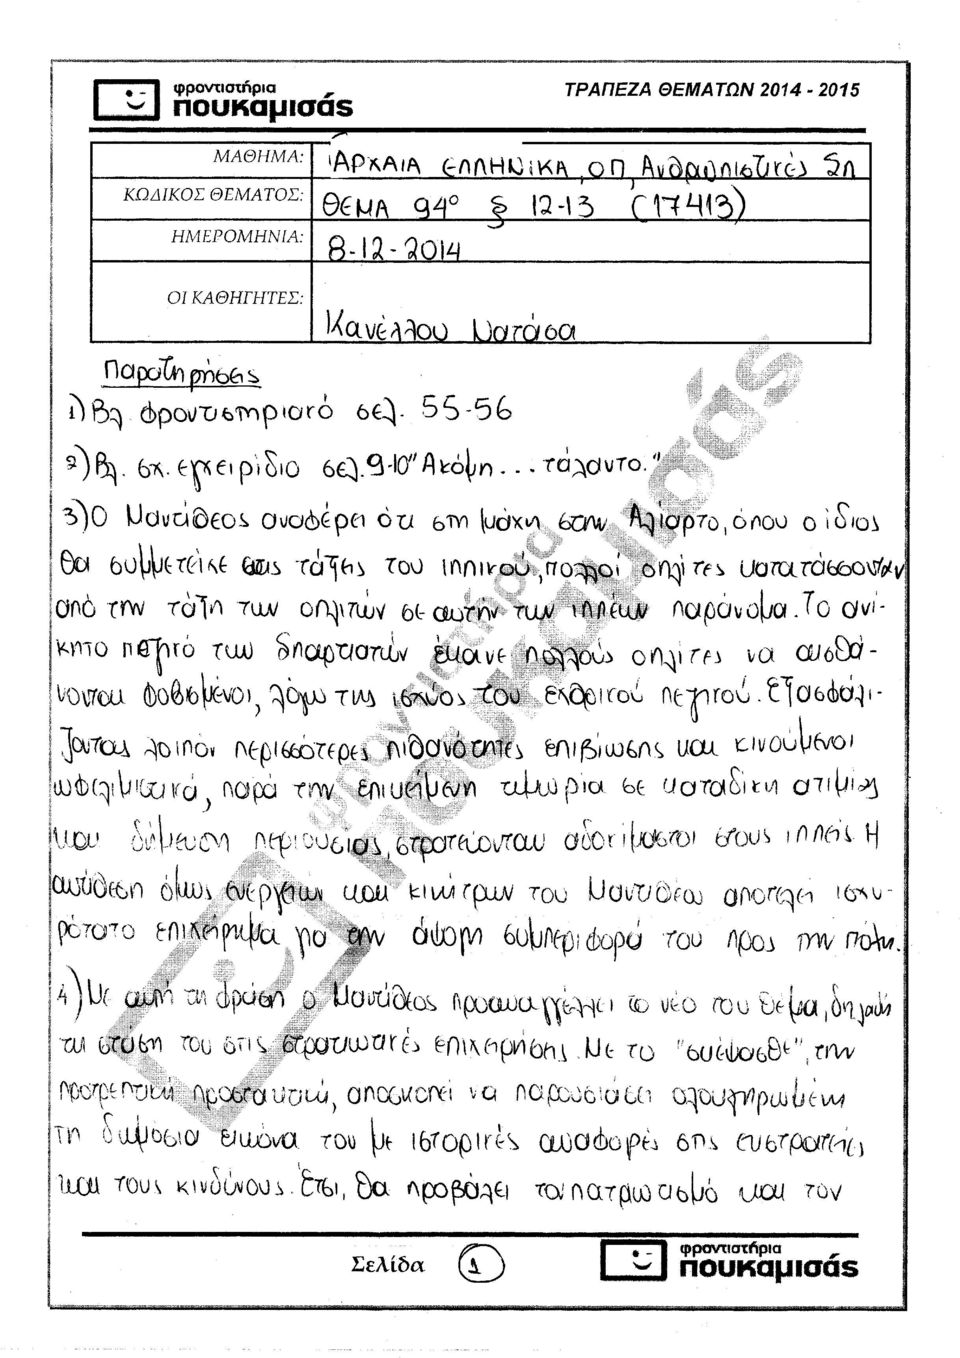 φροντιστήρια
πουκαμισάς
ΤΡΑΠΕΖΑ ΘΕΜΑΤΩΝ 2014 - 2015
ΜΑΘΗΜΑ: ΑΡΧΑΙΑ ΕΛΛΗΝΙΚΑ, ΟΠ Ανθρωπιστικές Σπ
ΚΩΔΙΚΟΣ ΘΕΜΑΤΟΣ: ΘΕΜΑ 94° § 12-13 (17413)
ΗΜΕΡΟΜΗΝΙΑ: 8-12-2014
ΟΙ ΚΑΘΗΓΗΤΕΣ: Κανέλλου Νατάσα
Παρατηρήσεις
1) Βλ. φροντιστηριακό σελ. 55-56
2) Βλ. σχ. εγχειρίδιο σελ. 9-10 "Ακόμη... τάλαντο."
3) Ο Μαντίθεος αναφέρει ότι στη μάχη στην Αλίαρτο, όπου ο ίδιος
θα συμμετείχε στις τάξεις του ιππικού, πολλοί οπλίτες κατατάσσονταν
από την τάξη των οπλιτών σε αυτήν των ιππέων παράνομα. Το ανί-
κητο πεζικό των Σπαρτιατών έκανε πολλούς οπλίτες να αισθά-
νονται φοβισμένοι, λόγω της ισχύος του εχθρικού πεζικού. Εξασφαλί-
ζοντας λοιπόν περισσότερες πιθανότητες επιβίωσης και κινούμενοι
ωφελιμιστικά, παρά την επικείμενη τιμωρία σε καταδίκη ατιμίας
και δήμευση περιουσίας, στρατεύονταν αδοκίμαστοι στους ιππείς. Η
αντίθεση όμως ενεργειών και κινήτρων του Μαντιθέου αποτελεί ισχυ-
ρότατο επιχείρημα για την άψογη συμπεριφορά του προς την πόλη.
4) Με αυτή τη φράση ο Μαντίθεος προαναγγέλλει το νέο του θέμα, δηλαδή
τη στάση του στις στρατιωτικές επιχειρήσεις. Με το "σκέψασθε", την
προτρεπτική προστακτική, αποσκοπεί να παρουσιάσει ολοκληρωμένη
τη δημόσια εικόνα του με ιστορικές αναφορές στις εκστρατείες
και τους κινδύνους. Έτσι, θα προβάλει τον πατριωτισμό και τον
Σελίδα 1
φροντιστήρια
πουκαμισάς
φροντιστήρια
πουκαμισάς